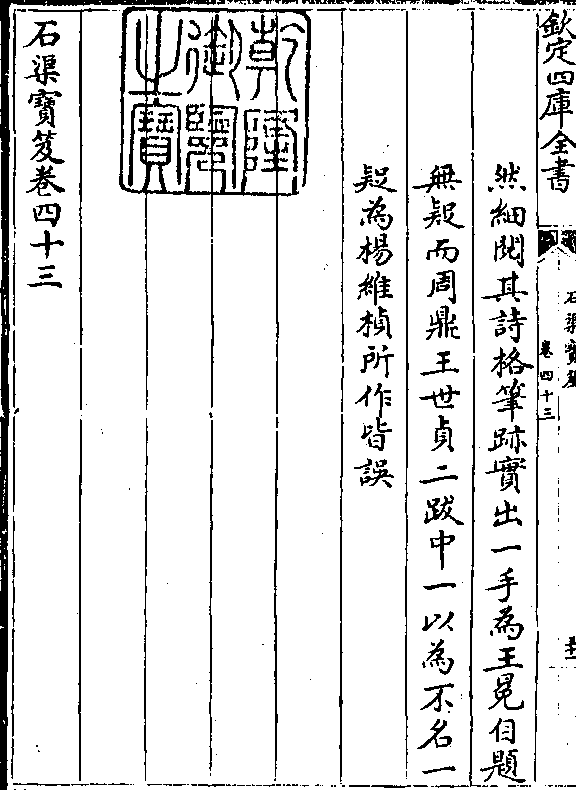 欽定四庫全書
石渠寶笈
卷四十三
然細閱其詩格筆跡實出一手為王冕自題
無疑而周鼎王世貞二跋中一以為不名一
疑為楊維楨所作皆誤
乾隆御覽之寶
石渠寶笈卷四十三